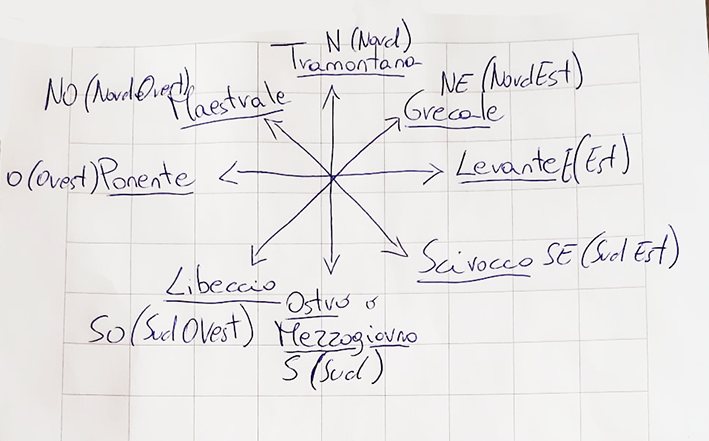 N (Nord)
Tramontana
NO (Nord Ovest)
Maestrale
NE (Nord Est)
Grecale
O (Ovest) Ponente
Levante E (Est)
Scirocco SE (Sud Est)
Libeccio
SO (Sud Ovest)
Ostro o
Mezzogiorno
S (Sud)